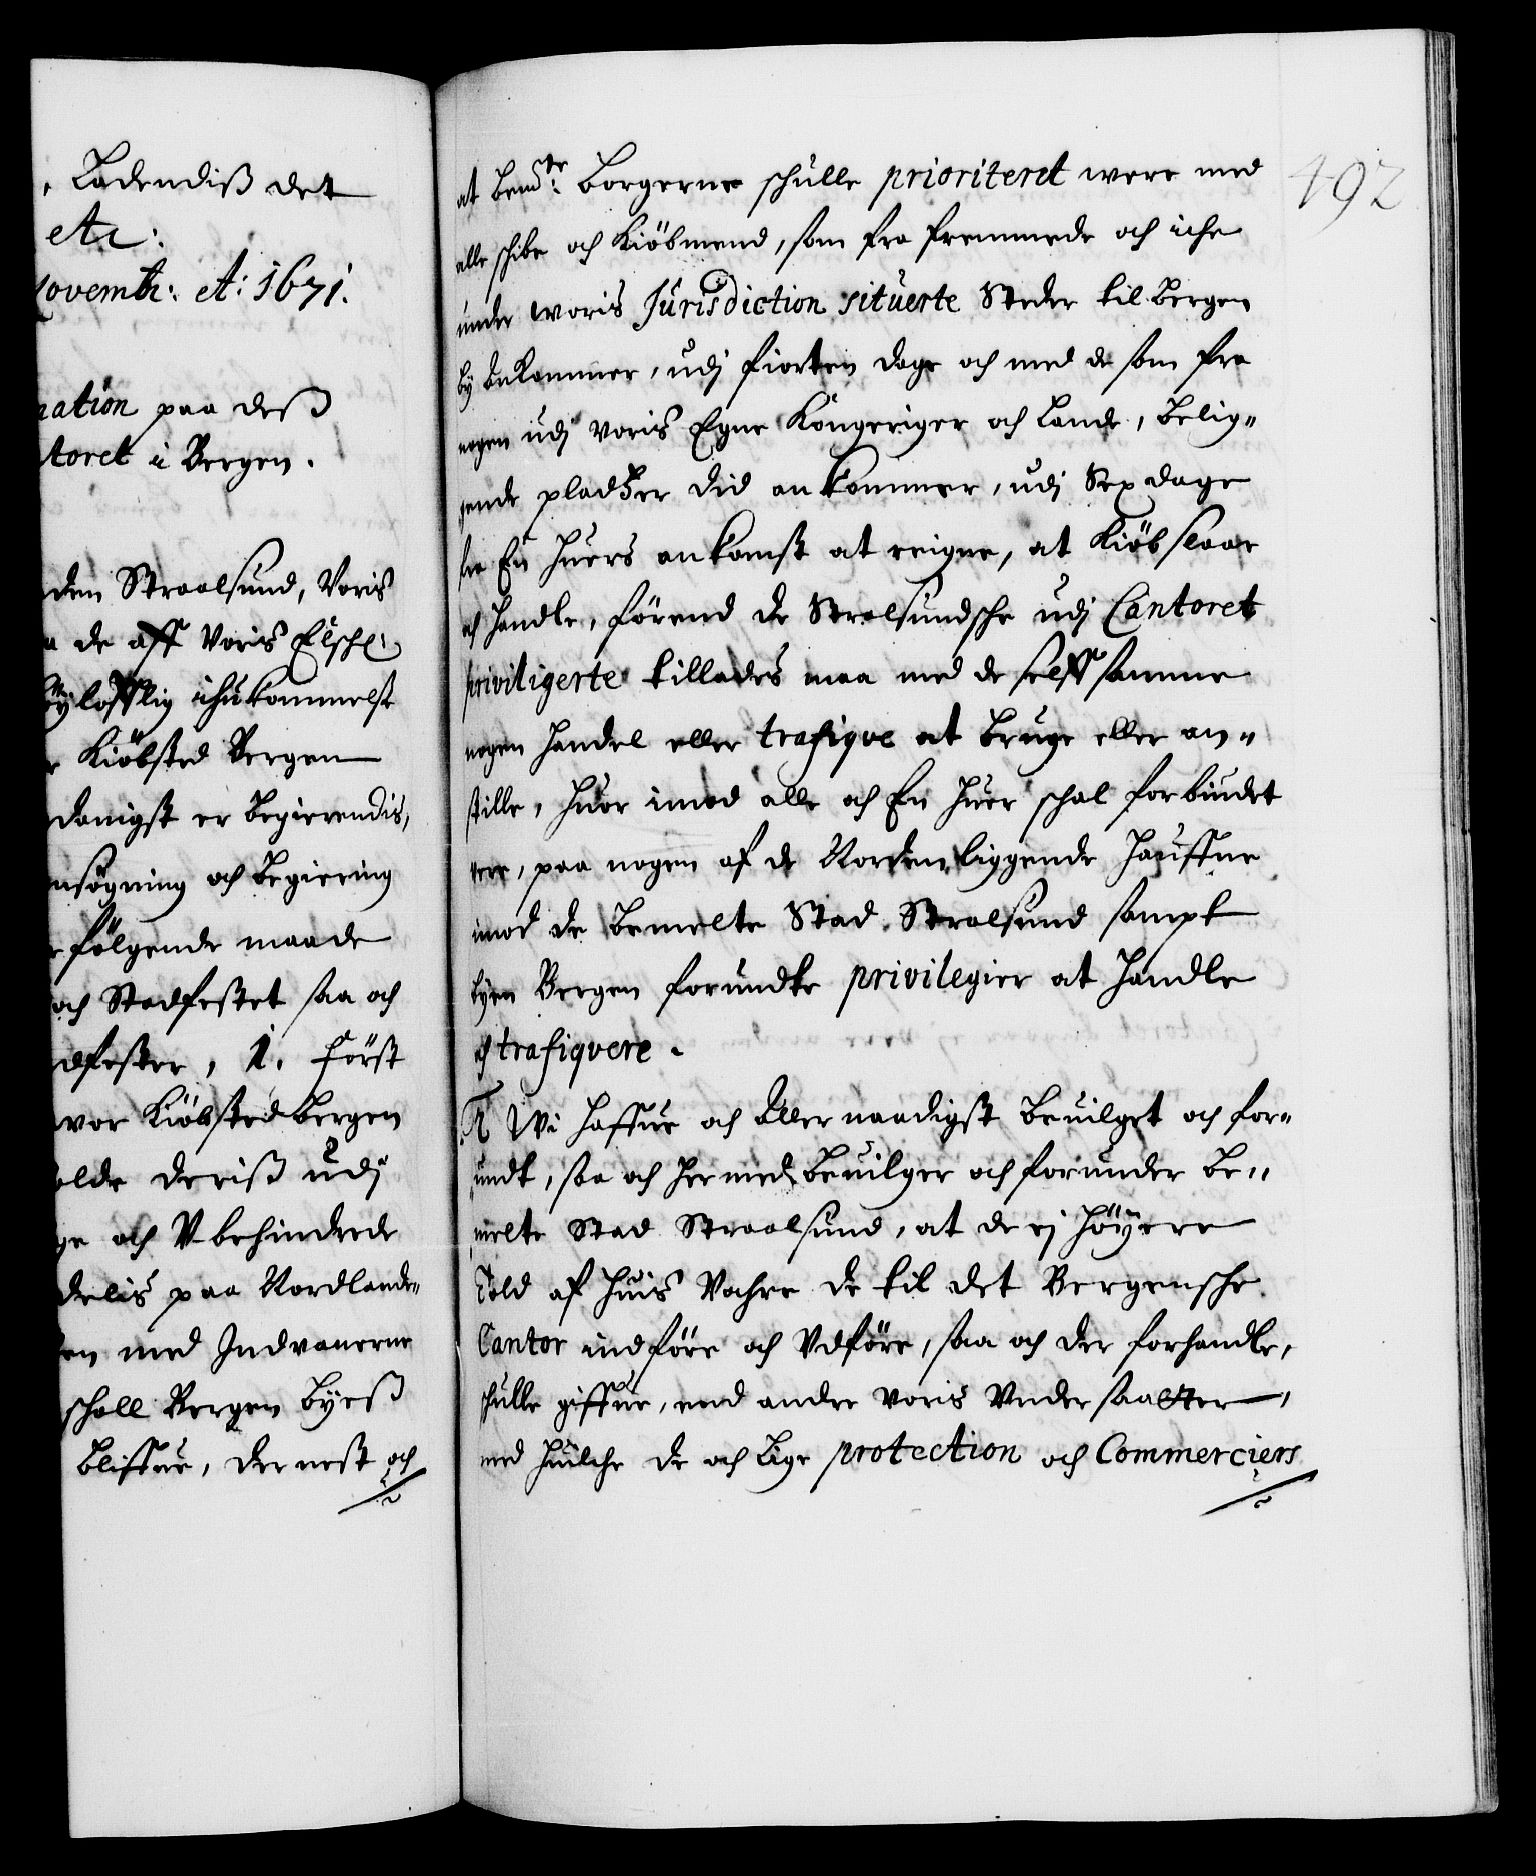 Ladendiß det
etc:
Novembr: A: 1671.
nation paa deß
toret i Bergen.
den Straalsund, Voris
a de aff Voris Elschl:
lofflig ihukommelse
r Kiöbsted Bergen
danigst er begierendis,
nsögning och begiering
r följende maade
och Stadfestet saa och
dfester, 1. Först
vor Kiöbsted bergen
olde deriß udj
ge och Vbehindrede
delis paa Nordlande„
en med Indvanerne
schall Bergen byeß
bliffue, der nest och
492
at bemte: borgerne schulle prioriteret were med
alle schibe och Kiöbmend, som fra fremmede och iche
under woris Jurisdiction situerte Steder til bergen
by ankommer, udj fiorten dage och med de som fra
nogen udj voris Egne Kongeriger och Lande, belig„
gende pladtzer did ankommer, udj Sex dage
fra En huers ankomst at reigne, at Kiöbslaae
och handle, förend de Stralsundsche udj Cantoret
priviligerte tillades maa med de selff samme
nogen handel eller trafique at bruge eller an„
stille, huor imod alle och En huer schal forbindet
vere, paa nogen af de Norden liggende hauffne
imod de bemelte Stad Stralsund sampt
byen Bergen forundte privilegier at handle
och trafiqvere.
2 Wi haffue och Allernaadigst beuilget och for„
undt, saa och hermed beuilger och forunder be„
melte Stad Straalsund, at de ej höyere
Told af huis Vahre de til det Bergensche
Cantor indföre och Vdföre, saa och der forhandle,
schulle giffue, end andre voris Vndersaatter,
med huilche de och lige protection och Commerciers